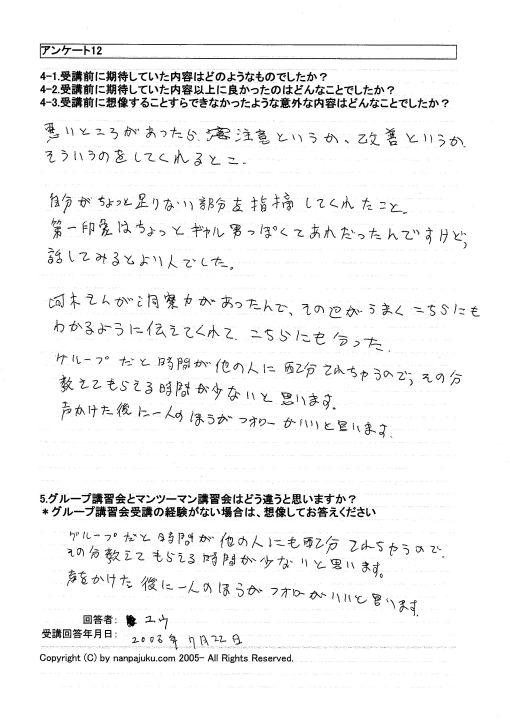 アンケート12
4-1.受講前に期待していた内容はどのようなものでしたか？
4-2.受講前に期待していた内容以上に良かったのはどんなことでしたか？
4-3.受講前に想像することすらできなかったような意外な内容はどんなことでしたか？
悪いところがあったら、注意というか、改善というか
そういうのをしてくれるとこ.
自分がちょっと足りない部分を指摘してくれたこと。
第一印象はちょっとギャル男っぽくてあれだったんですけど,
話してみるとよい人でした。
さんが洞察力があったんで、その がうまくこちらにも
わかるように伝えてくれて、こちらにも合った.
グループだと時間が他の人に配分されちゃうので,その分
教えてもらえる時間が少ないと思います。
声かけた後に一人のほうがフォローがいいと思います.
5.グループ講習会とマンツーマン講習会はどう違うと思いますか？
＊グループ講習会受講の経験がない場合は、想像してお答えください
グループだと時間が他の人にも配分されちゃうので.
その分教えてもらえる時間が少ないと思います。
声をかけた後に一人のほうがフォローがいいと思います.
回答者： ユウ
受講回答年月日： 2006年 7月22日
Copyright (C) by nanpajuku.com 2005- All Rights Reserved.